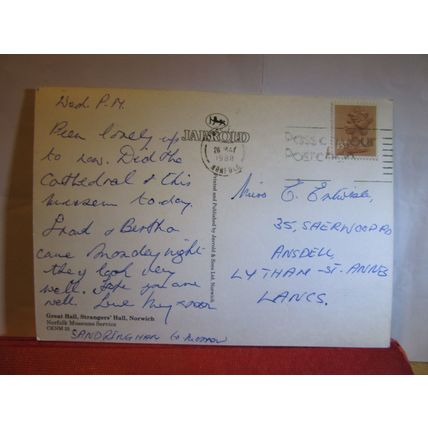 Wed. P.M.
Been lovely up
to now. Did the
Cathedral & this
museum today.
& Bertha
came Monday night
they look very
well. Hope you are
well. Love
Great Hall, Strangers' Hall, Norwich
Norfolk Museums Service
CKNM 10
SANDRINGHAM to morrow
JARROLD
Printed and Published by Jarrold & Sons Ltd. Norwich
26 MAY
1988
NORFOLK
Pass on your
Postcode
Miss E. Entwisle,
35, SHERWOOD RD
ANSDELL,
LYTHAM-ST. ANNES
LANCS.